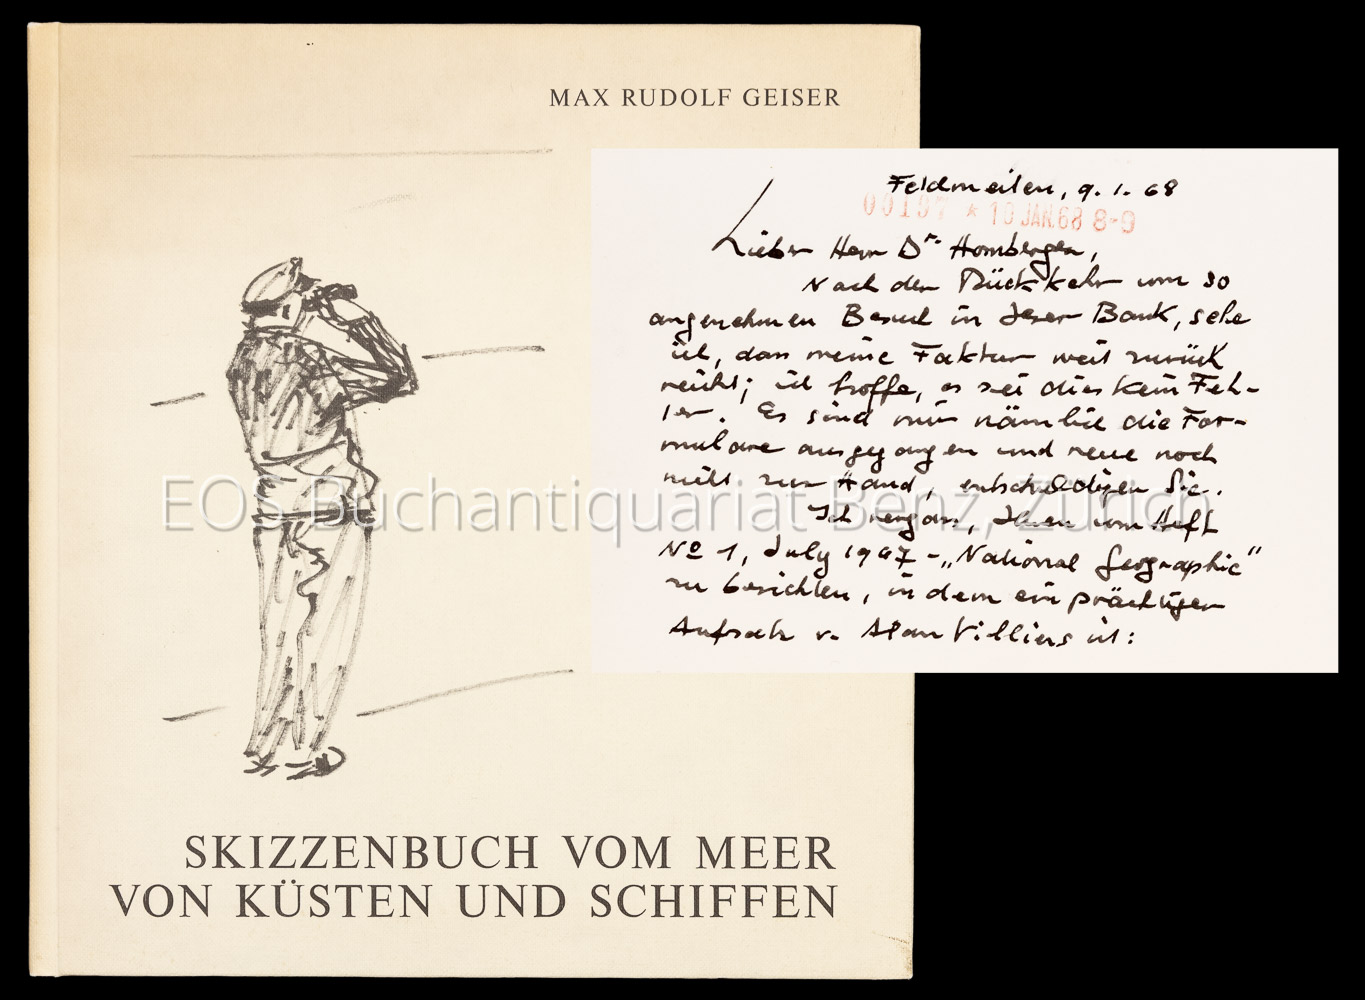 MAX RUDOLF GEISER
Feldmeilen, 9. 1. 68
00197 * 10 JAN. 68 8-9
Lieber Herr Dr. Homberger,
Nach der Rückkehr vom so
angenehmen Besuch in Ihrer Bank, sehe
ich, dass meine Faktur weit zurück
reicht; ich hoffe, es sei dies kein Feh-
ler. Es sind mir nämlich die For-
mulare ausgegangen und neue noch
nicht zur Hand, entschuldigen Sie.
Ich vergass, Ihnen vom Heft
No 1, July 1947 - „National Geographic"
zu berichten, in dem ein prächtiger
Aufsatz v. Alan Villiers ist:
EOS Buchantiquariat Benz, Zürich
SKIZZENBUCH VOM MEER
VON KÜSTEN UND SCHIFFEN